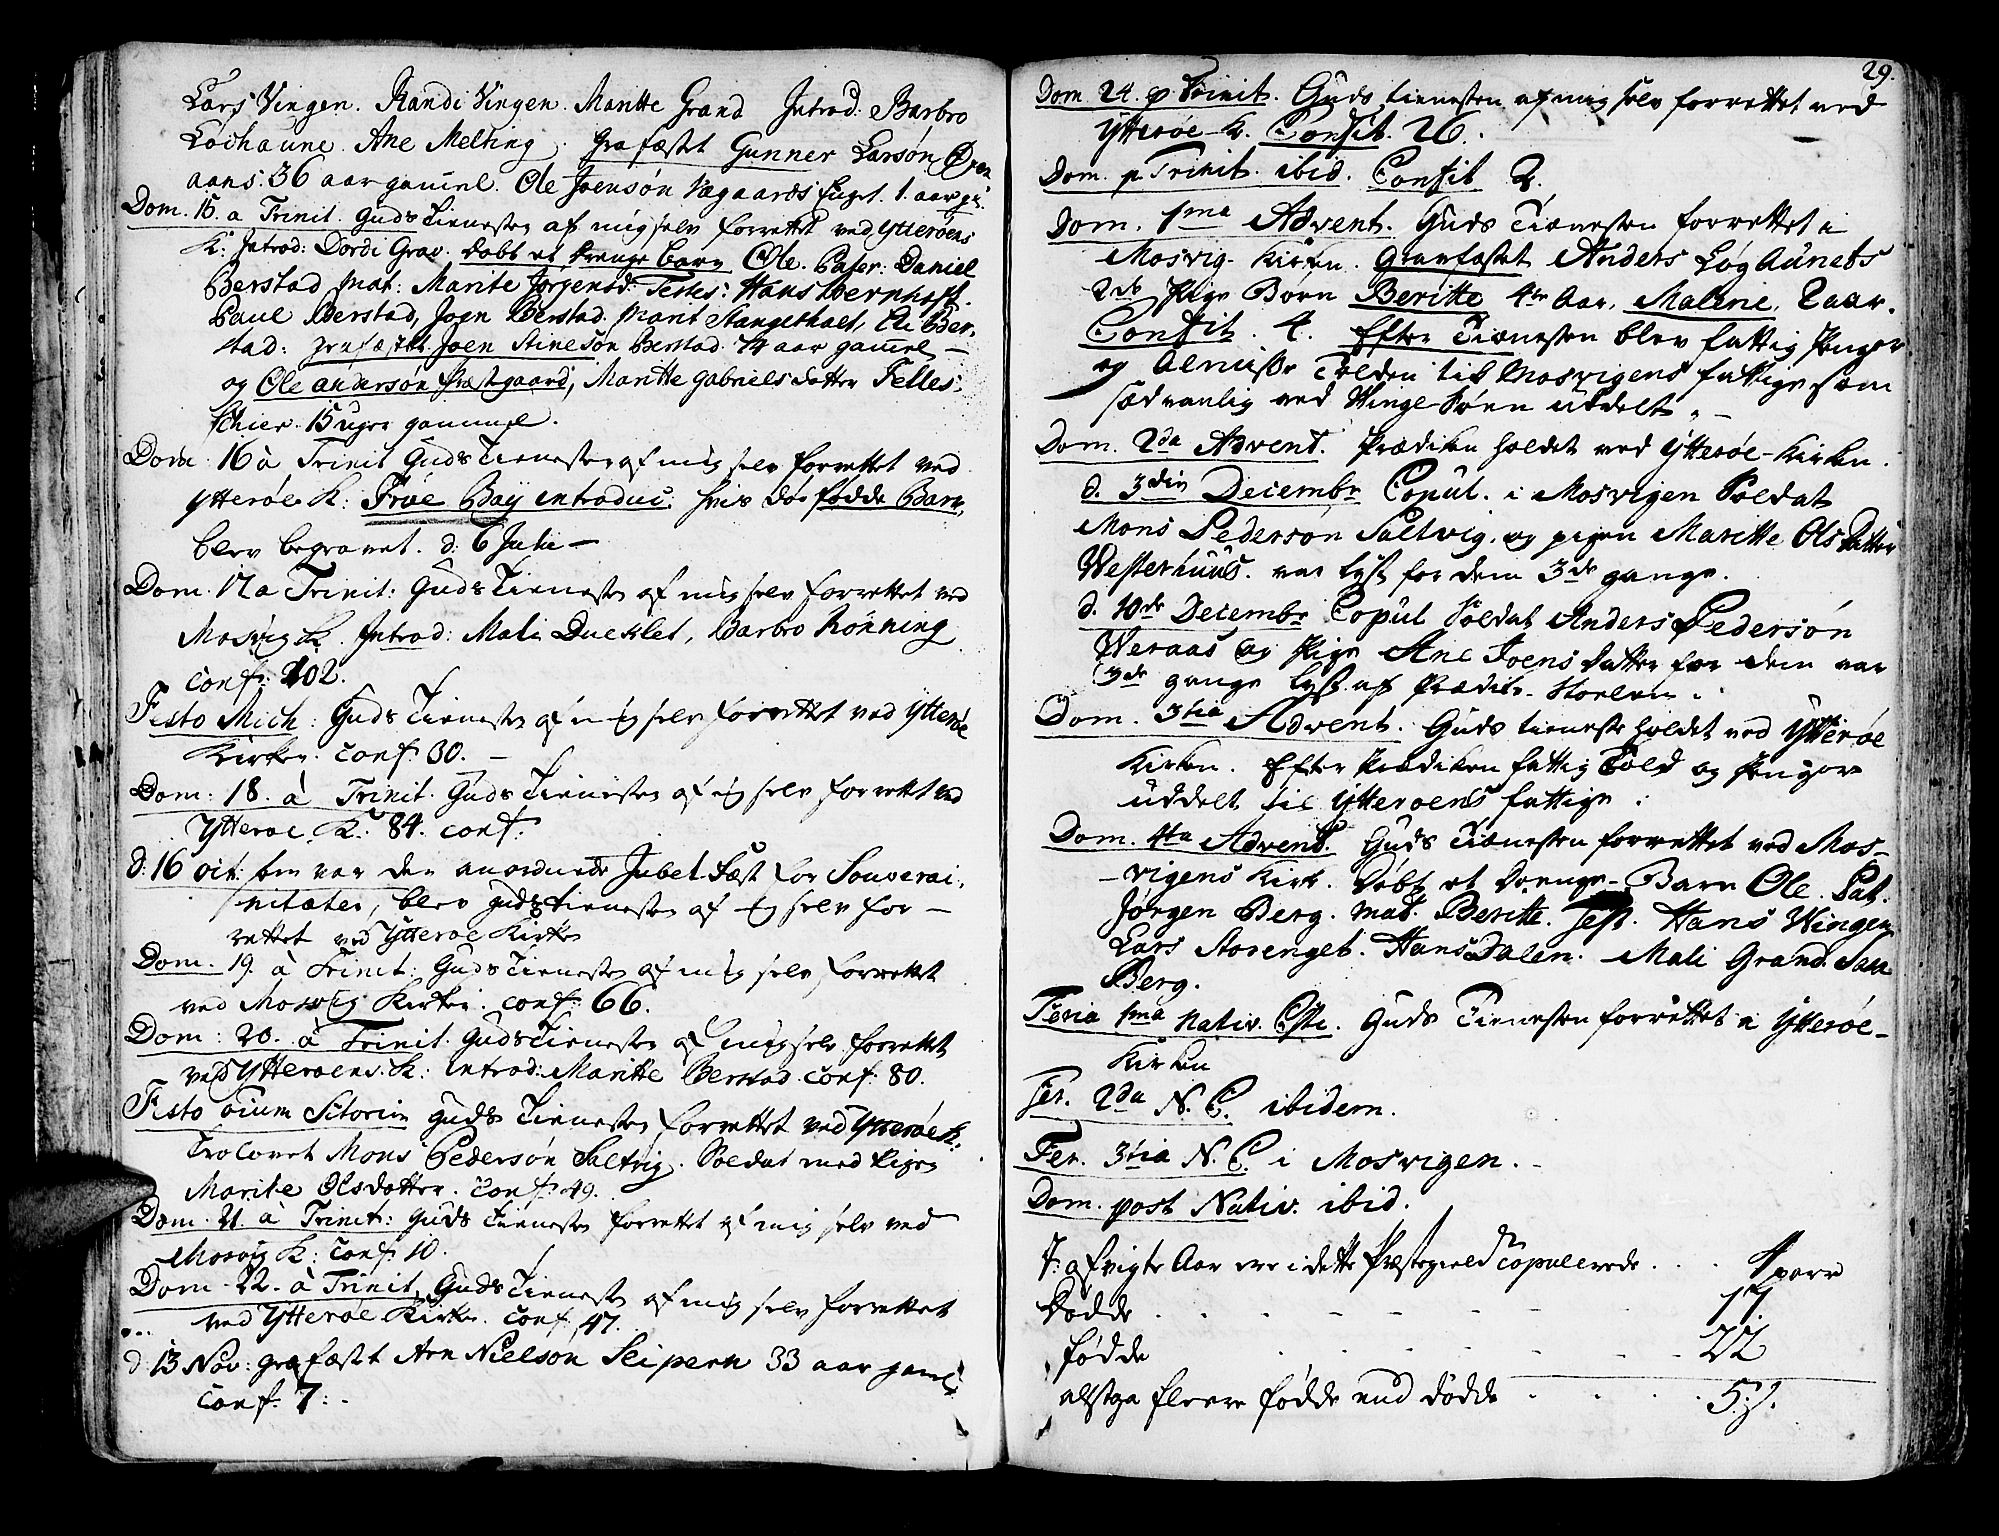 Lars Vingen. Randi Vingen. Maritte Grand Introd. Barbro
Løchaune. Ane Melting. Grafæstet Gunner Larsøn
aans. 36 aar gamel. Ole Joensøn Vægaards 1. aar
Dom. 15. a Trinit. Guds Tienesten af mig selv forrettet ved Ytterøens
K: Introd: Dordi Grav. Døbt et Drenge barn Ole. Pater: Daniel
Berstad mat: Marite Jørgensd: Testes: Hans Bernhoft.
Paul Berstad, Joen Berstad. Marit Stangerholt, Eli Ber-
stad: grafæstet Joen Stinesøn Berstad 74 aar gamel -
og Ole andersøn Præstgaard, Maritte Gabriels datter Felles-
15 uger gammel.
Dom: 16 à Trinit Guds Tienesten af mig selv forrettet ved
Ytterøe K: Froe Bay introduc: hvis død fødde Barn,
blev begravet. d: 6 Julii -
Dom. 17 a Trinit: Guds Tienesten af mig selv forrettet ved
Mosvig K. Introd: Mali Dueklet, Barbro Rönning
conf: 102.
Festo Mich: Guds Tienesten af mig selv forrettet ved Ytterøe
Kirke. conf. 30. -
Dom: 18. à Trinit. Guds Tienesten af mig selv forrettet ved
Ytterøe K: 84. conf:
d: 16 oct: som var den anordnede Jubel-Fæst for Souverai-
nitæten, blev gudstienesten af mig selv for-
rettet ved Ytterøe Kirke
Dom. 19. à Trinit: Guds Tienesten af mig selv forrettet
ved Mosvig Kirke. conf: 66.
Dom: 20. à Trinit. Guds Tienesten af mig selv forrettet
ved Ytterøens K: introd: Maritte Berstad. conf: 80.
Festo oium Sctorum guds Tienesten forrettet ved Ytterøe K:
Trolovet Mons Pedersøn Saltvig. Soldat med Pigen
Marite Olsdatter. conf. 49.
Dom. 21. à Trinit: Guds Tienesten forrettet af mig selv ved
Mosvig K: conf: 10.
Dom. 22. à Trinit. Guds Tienesten af mig selv forrettet
ved Ytterøe Kirke. conf. 47.
d: 13 Nov: grafæstet Arn Nielsøn Leipern 33 aar gamel
conf. 7:
29.
Dom 24. p Trinit. Guds tienesten af mig selv forrettet ved
Ytterøe-K. Confit. 26.
Dom. p Trinit. ibid. Confit 2.
Dom. 1ma Advent. Guds Tienesten forrettet i
Mosvig-Kirken. Gravfæstet Anders Løghaunets
2de Pige Børn Beritte 4re Aar, Malene. 2 aar.
Confit. 4. Efter Tienesten blev fattig Penger
og Tolden til Mosvigens fattige som
sædvanlig ved Vinge-Søen uddelt. -
Dom. 2da Advent. Prædiken holdet ved Ytterøe-Kirken.
d. 3die Decembr Copul. i Mosvigen Soldat
Mons Pedersøn Saltvig. og pigen Maritte Ols Datter
Westerhuus. var lyst for dem 3de gange.
d. 10de Decembr Copul Soldat Anders Pedersøn
Weraas og Pige Ane Joens datter for dem var
3de gange lyst af Prædike-Stoelen.
Dom. 3tia Advent. Guds tieneste holdet ved Ytterøe
Kirken. Efter Prædiken fattig Told og Penger
uddelt til Ytterøens fattige.
Dom. 4ta Advend. Guds Tienesten forrettet ved Mos-
-vigens Kirk. Døbt et Drenge-Barn Ole. Pat.
Jørgen Berg. mat. Beritte. Test. Hans Wingen
Lars Storenget. Hans Dalen. Mali Grand. Sara
Berg.
Feria 1ma Nativ. Csti. Guds Tienesten forrettet i Ytterøe-
Kirken
Fer. 2da N. C. ibidem.
Fer. 3tia N. C. i Mosvigen. -
Dom. post Nativ. ibid.
I afvigte Aar ere i dette Præstegield copulerede . . . 4 parr
Dødde . . . . . 17.
fødde . . . . . 22
altsaa fleere fødde end dødde . . . . 5.